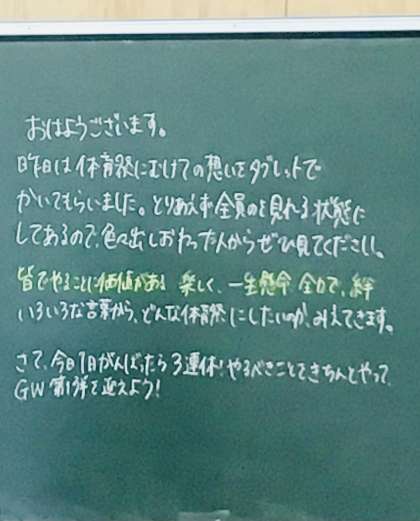 おはようございます。
昨日は体育祭にむけての想いをタブレットで
かいてもらいました。とりあえず全員のを見れる状態に
してあるので、色々出しおわった人からぜひ見てください。
皆でやることに価値がある 楽しく、一生懸命 全力で、絆
いろいろな言葉から、どんな体育祭にしたいのか、みえてきます。
さて、今日1日がんばったら3連休!やるべきことをきちんとやって、
GW第1弾を迎えよう!